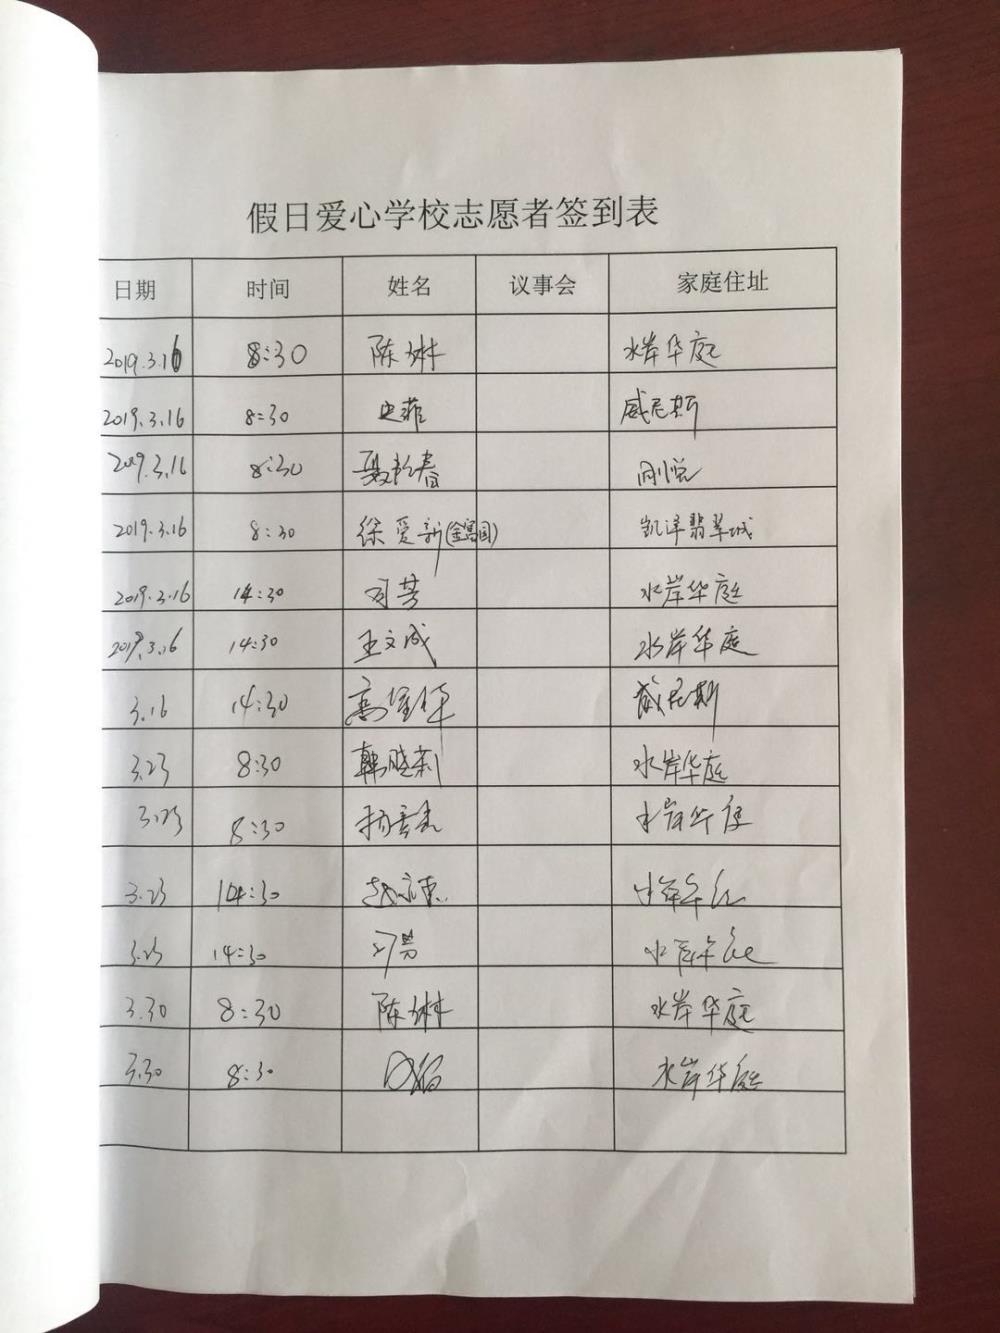 假日爱心学校志愿者签到表
日期 时间 姓名 议事会 家庭住址
2019.3.16 8:30 陈琳 水岸华庭
2019.3.16 8:30 史菲 威尼斯
2019.3.16 8:30 聂长春 刚悦
2019.3.16 8:30 徐爱新(金富国) 凯泽翡翠城
2019.3.16 14:30 芳 水岸华庭
2019.3.16 14:30 王文成 水岸华庭
3.16 14:30 高 威尼斯
3.23 8:30 韩晓莉 水岸华庭
3.23 8:30 杨 水岸华庭
3.23 14:30 赵 水岸华庭
3.23 14:30 水岸华庭
3.30 8:30 陈琳 水岸华庭
3.30 8:30 水岸华庭